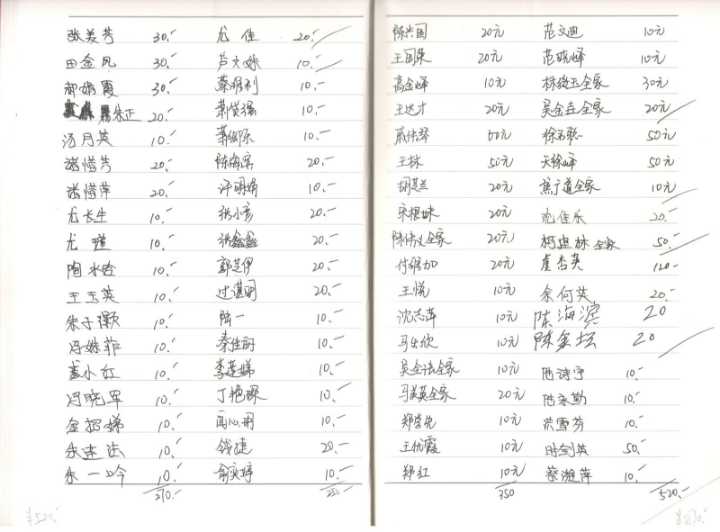 张美芳 30.- 尤佳 20.-
田金凤 30.- 芦文娣 10.-
郝娟霞 30.- 蔡根利 10.-
朱正 20.- 10.-
汤月英 10.- 10.-
诸惜芳 20.- 陈 20.-
诸惜萍 20.- 许明娟 10.-
尤长生 10.- 张小彦 20.-
尤瑾 10.- 张鑫鑫 20.-
陶水 10.- 郭芝伊 20.-
王玉英 10.- 过湛明 20.-
朱子灏 10.- 陆一 10.-
冯妹菲 10.- 秦佳丽 10.-
小红 10.- 李莲娣 10.-
冯晓军 10.- 丁艳琛 10.-
金招娣 10.- 10.-
朱连法 10.- 钱捷 20.-
朱一吟 10.- 俞文婷 10.-
270.- 250.-
¥520.-
陈兴国 20元 范文迪 10元
王国朱 20元 范晓峰 10元
高金峰 10元 林 玉全家 30元
王达才 20元 吴金 全家 20元
戚 60元 徐 50元
王林 50元 天缘峰 50元
胡芝兰 20元 焦广道全家 10元
宋根妹 20元 范佳乐 20.-
陈 全家 20元 柯忠林全家 50.-
付 加 20元 虞杏英 120.-
王悦 10元 余何英 20.-
沈志萍 10元 陈海滨 20
马 欣 10元 陈金坛 20
吴金法全家 10元 陆诗宇 10.-
马英全家 20元 陆来勤 10.-
郑 10元 洪雪芳 10.-
王仙霞 10元 时剑英 50.-
郑红 10元 蔡湘萍 10.-
350 520.-
¥870.-